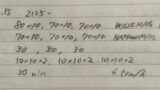 .15 2125-
80×10, 70×10, 70×10 WIDE MAG
70×10, 70×10, 70×10 NARROW MAG
30, 30, 30
10×10×2, 10×10×2, 10×10×2
30 min